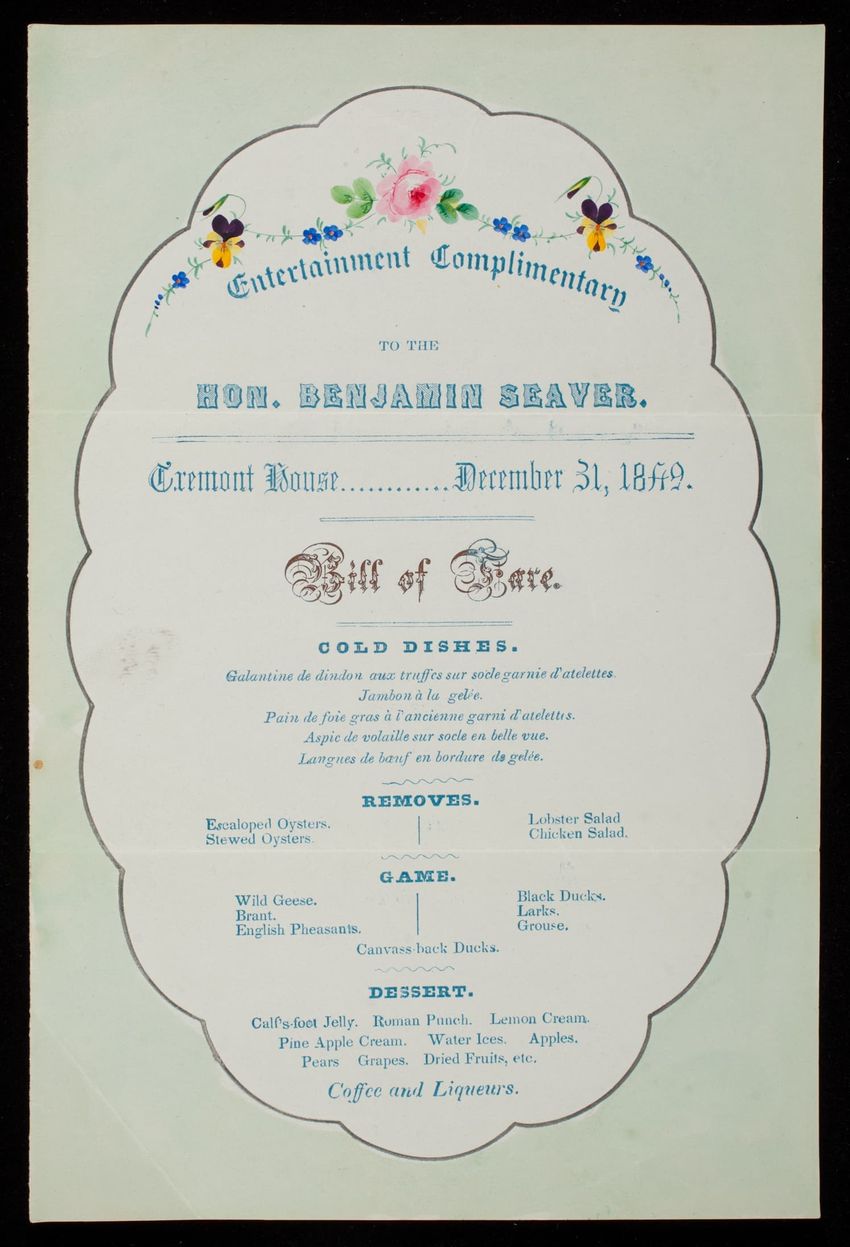 Entertainment Complimentary
TO THE
HON. BENJAMIN SEAVER.
Tremont House............December 31, 1849.
Bill of Fare.
COLD DISHES.
Galantine de dindon aux truffes sur socle garnie d'atelettes.
Jambon à la gelée.
Pain de foie gras à l'ancienne garni d'atelettes.
Aspic de volaille sur socle en belle vue.
Langues de bœuf en bordure de gelée.
REMOVES.
Escaloped Oysters.
Stewed Oysters.
Lobster Salad
Chicken Salad.
GAME.
Wild Geese.
Brant.
English Pheasants.
Black Ducks.
Larks.
Grouse.
Canvass-back Ducks.
DESSERT.
Calf's-foot Jelly. Roman Punch. Lemon Cream.
Pine Apple Cream. Water Ices. Apples.
Pears Grapes. Dried Fruits, etc.
Coffee and Liqueurs.